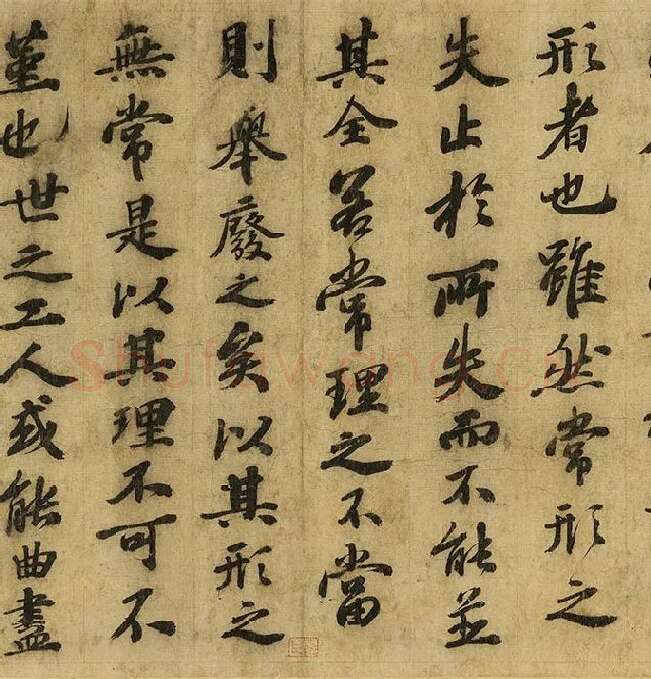 形者也雖然常形之
失止於所失而不能並
其全若常理之不當
則舉廢之矣以其形之
無常是以其理不可不
堇也世之工人或能曲盡